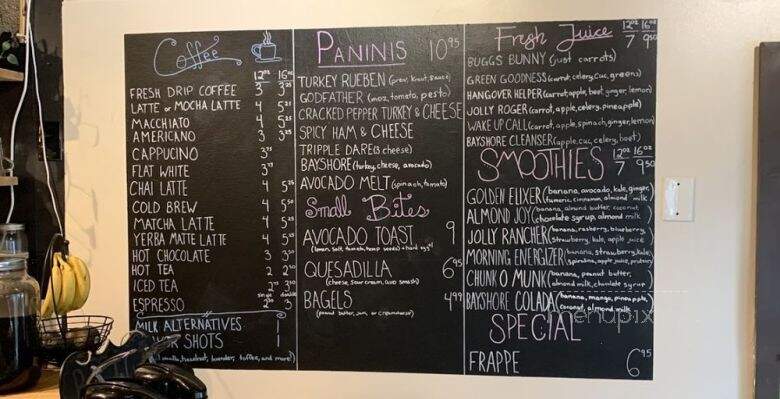 Coffee
12oz 16oz
FRESH DRIP COFFEE 3
LATTE or MOCHA LATTE 4
MACCHIATO 4
AMERICANO 3
CAPPUCCINO
FLAT WHITE
CHAI LATTE 4
COLD BREW 4
MATCHA LATTE 4
YERBA MATTE LATTE 4
HOT CHOCOLATE 3
HOT TEA 2
ICED TEA
ESPRESSO
MILK ALTERNATIVES 1
SHOTS 1
hazelnut, lavender, toffee, and more!)
PANINIS 10 95
TURKEY RUEBEN (prov, kraut, sauce)
GODFATHER (moz, tomato, pesto)
CRACKED PEPPER TURKEY & CHEESE
SPICY HAM & CHEESE
TRIPPLE DARE (3 cheese)
BAYSHORE (turkey, cheese, avocado)
AVOCADO MELT (spinach, tomato)
Small Bites
AVOCADO TOAST 9
(lemon, salt, tomato, hemp seeds) + hard egg
QUESADILLA 6 95
(cheese, sour cream, and smash)
BAGELS 4 99
(peanut butter, jam, or creamcheese)
Fresh Juice 12oz 16oz
7 9 50
BUGGS BUNNY (just carrots)
GREEN GOODNESS (carrot, celery, cuc, greens)
HANGOVER HELPER (carrot, apple, beet, ginger, lemon)
JOLLY ROGER (carrot, apple, celery, pineapple)
WAKE UP CALL (carrot, apple, spinach, ginger, lemon)
BAYSHORE CLEANSER (apple, cuc, celery, beet)
SMOOTHIES 12oz 16oz
7 9 50
GOLDEN ELIXER (banana, avocado, kale, ginger,
tumeric, cinnamon, almond milk)
ALMOND JOY (banana, almond butter, coconut,
chocolate syrup, almond milk)
JOLLY RANCHER (banana, rasberry, blueberry,
strawberry, kale, apple juice)
MORNING ENERGIZER (banana, strawberry, kale,
spirulina, apple juice, protein)
CHUNK O MUNK (banana, peanut butter,
almond milk, chocolate syrup)
BAYSHORE COLADA (banana, mango, pineapple,
coconut, almond milk)
SPECIAL
FRAPPE 6 95
menupix